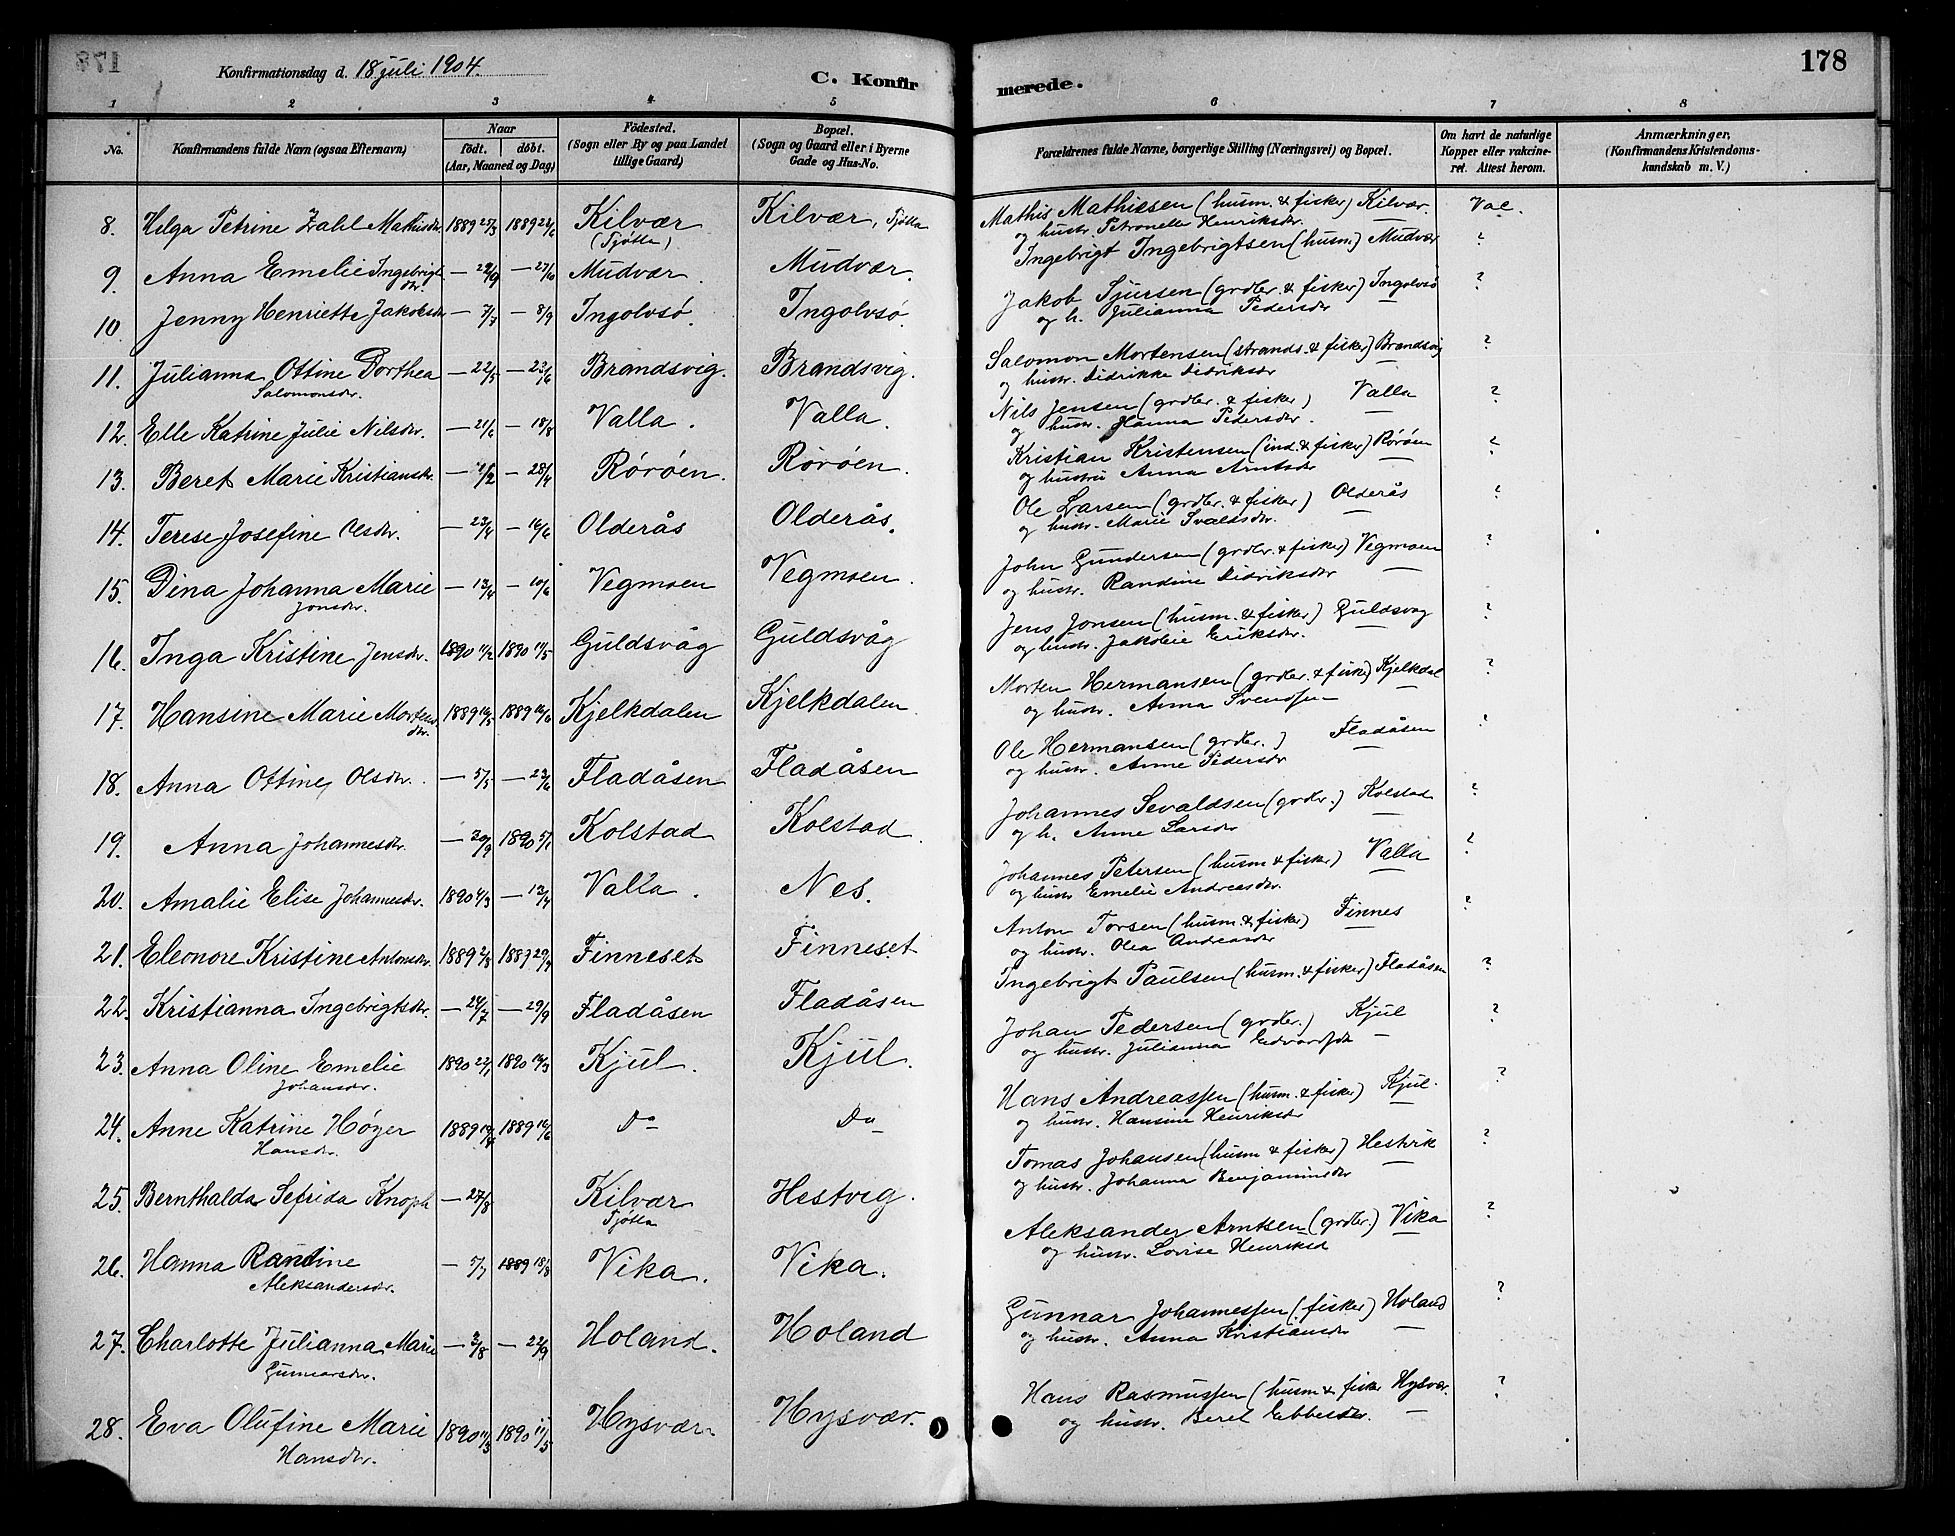 178
Konfirmationsdag d. 18 juli 1904.
C. Konfir
merede.
1 2 3 4 5 6 7 8
No.
Konfirmandens fulde Navn (ogsaa Efternavn)
Naar
födt. döbt.
(Aar, Maaned og Dag)
Födested.
(Sogn eller By og paa Landet
tillige Gaard)
Bopæl.
(Sogn og Gaard eller i Byerne
Gade og Hus-No.
Forældrenes fulde Navne, borgerlige Stilling (Næringsvei) og Bopæl.
Om havt de naturlige
Kopper eller vakcine-
ret. Attest herom.
Anmærkninger,
(Konfirmandens Kristendoms-
kundskab m. V.)
8. Helga Petrine Zahl Mathisdr. 1889 25/3 1889 24/6 Kilvær Kilvær, Tjötta Mathis Mathissen (husm. & fisker) Kilvær. Vac.
(Tjøtta) og hustr. Petronelle Henriksdr.
9. Anna Emelie Ingebrigts — 29/9 — 27/10 Mudvær. Mudvær. Ingebrigt Ingebrigtsen (husm.) Mudvær ?
dr.
10. Jenny Henriette Jakobsdr — 7/7 — 8/9 Ingolvsø. Ingolvsø. Jakob Sjursen (grdbr. & fisker) Ingolvsø ?
og h. Julianna Pedersdr
11. Julianna Ottine Dorthea — 22/5 — 23/6 Brandsvig. Brandsvig. Salomon Mortensen (strands. & fisker) Brandsvig ?
Salomonsdr. og hustr. Didrikke Didriksdr
12. Elle Katrine Julie Nilsdr. — 21/6 — 18/8 Valla. Valla. Nils Jensen (grdbr. & fisker) Valla ?
og hustr. Hanna Pedersdr.
13. Beret Marie Kristiansdr. — 2/2 — 28/4 Rörøen. Rörøen. Kristian Kristensen (ind. & fisker) Rörøen ?
og hustru Anna Arntsdr
14. Terese Josefine Olsdr. — 23/4 — 16/6 Olderås Olderås. Ole Larsen (grdbr. & fisker) Olderås ?
og hustr. Marie Svaldsdr.
15. Dina Johanna Marie — 13/4 — 10/6 Vegmoen Vegmoen. John Gundersen (grdbr. & fisker) Vegmoen ?
Jonsdr. og hustr. Randine Didriksdr
16. Inga Kristine Jensdr. 1890 11/2 1890 11/5 Guldsvåg Guldsvåg Jens Jonsen (husm. & fisker) Guldsvåg ?
og hustr. Jakobie Eriksdr.
17. Hansine Marie Mortens 1889 16/5 1889 16/6 Kjelkdalen Kjelkdalen Morten Hermansen (grdbr. & fisker) Kjelkdal ?
dr. og hustr. Anna Svendsen
18. Anna Ottine Olsdr. — 5/5 — 23/6 Fladåsen Fladåsen Ole Hermansen (grdbr.) Fladåsen ?
og hustr. Anne Pedersdr
19. Anna Johannesdr. — 20/9 1890 5/1 Kolstad Kolstad Johannes Sevaldsen (grdbr.) Kolstad ?
og h. Anne Larsdr
20. Amalie Elise Johannesdr. 1890 4/3 — 13/4 Valla. Nes. Johannes Petersen (husm & fisker) Valla ?
og hustr Emelie Andreasdr.
21. Eleonore Kristine Antonsdr. 1889 2/8 1889 29/9 Finneset Finneset Anton Torsen (husm. & fisker) Finnes ?
og hustr. Olea Andreasdr
22. Kristianna Ingebrigtsdr. — 24/7 — 29/9 Fladåsen Fladåsen Ingebrigt Paulsen (husm. & fisker) Fladåsen ?
23. Anna Oline Emelie 1890 22/1 1890 14/3 Kjul. Kjul. Johan Pedersen (grdbr.) Kjul ?
Johansdr. og hustr. Julianna Edvardsdr
24. Anne Katrine Høyer 1889 1889 16/6 Do Do Hans Andreassen (husm. & fisker) Kjul. ?
Hansdr. og hustr. Hansine Henriksdr
25. Bernthalda Sefrida Knoph — 27/8 Kilvær Hestvig. Tomas Johansen (husm & fisker) Hestvik ?
Tjøtta og hustr. Johanna Benjaminsdr
26. Hanna Randine — 5/7 1889 18/8 Vika. Vika. Aleksander Arntsen (grdbr.) Vika ?
Aleksandersdr. og hustr. Lovise Henriksd
27. Charlotte Julianna Marie — 3/8 — 22/9 Holand. Holand Gunnar Johannessen (fisker) Holand ?
Gunnarsdr. og hustr. Anna Kristiansdr
28. Eva Olufine Marie 1890 11/3 1890 11/5 Hysvær Hysvær. Hans Rasmussen (husm & fisker Hysvær. ?
Hansdr. og hustr. Beret Ebbesdr.